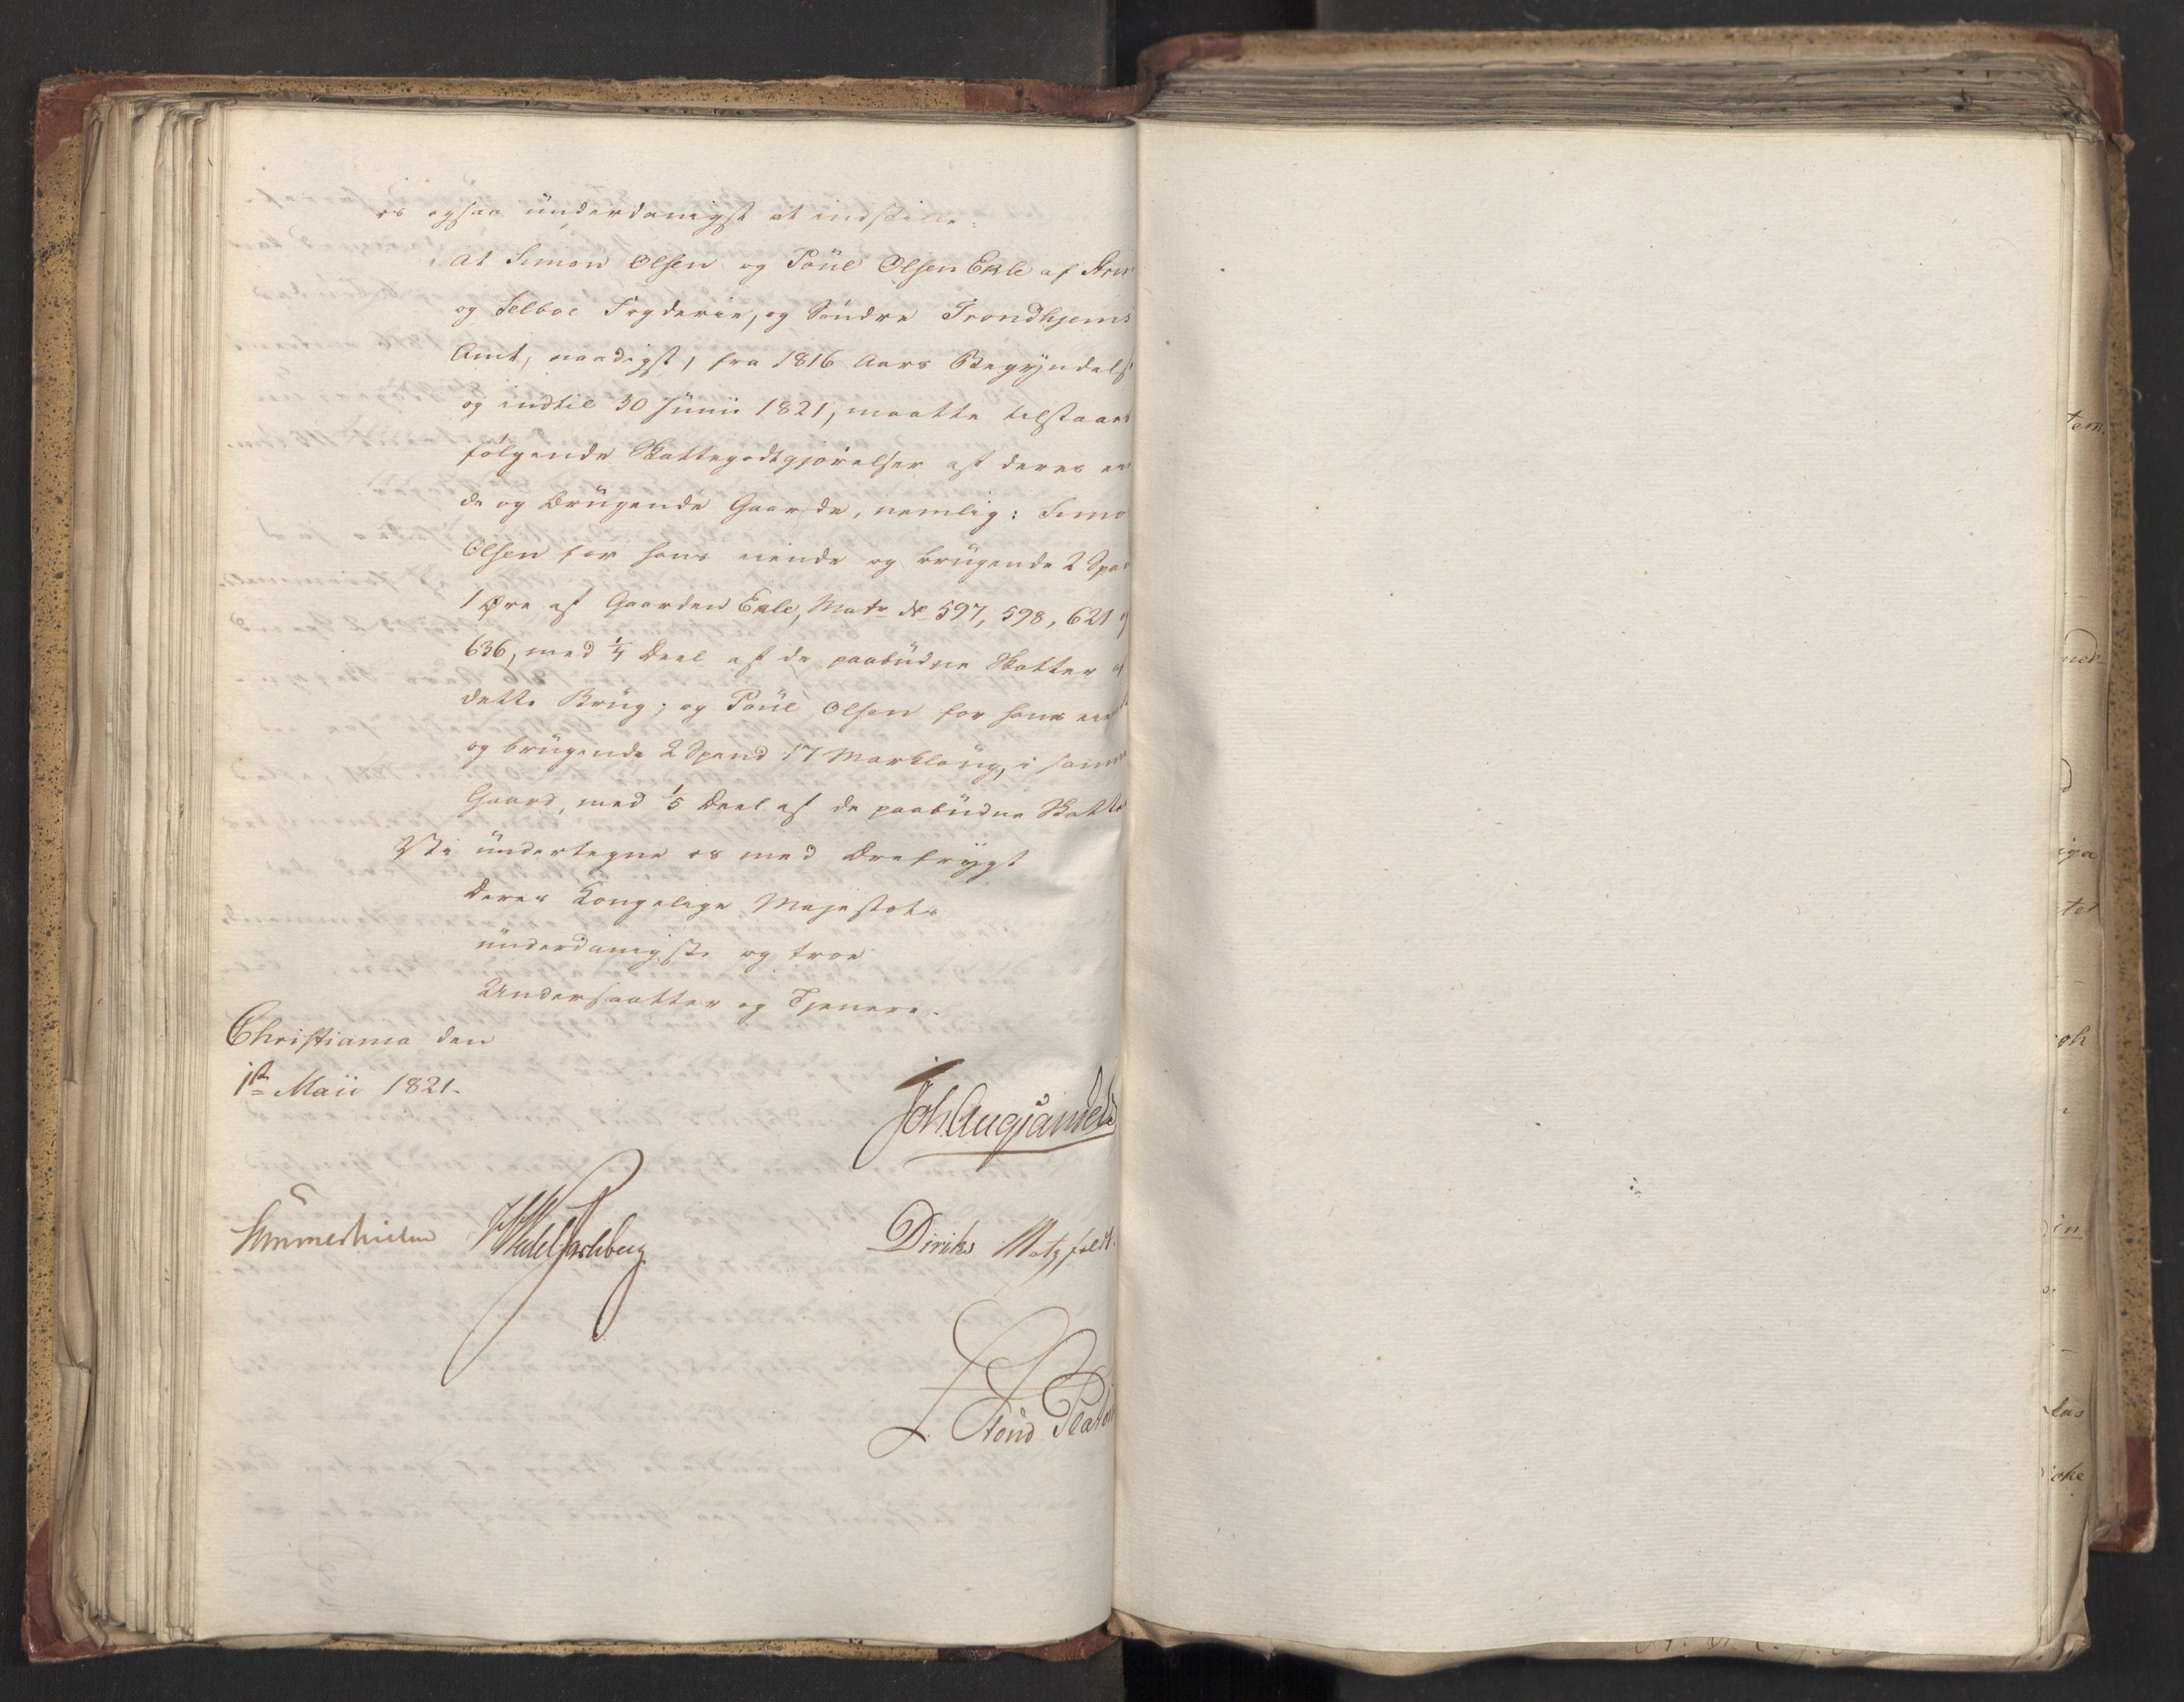 os ogsaa underdanigst at indstille:
at Simon Olsen og Poul Olsen Ekle af Strin
og Selboe Fogderie, og Søndre Trondhjems
Amt, naadigst, fra 1816 Aars Begyndelse
og indtil 30 Junii 1821, maatte tilstaaes
følgende Skattegodtgjørelser af deres eien
de og brugende Gaarde, nemlig: Simo
Olsen for hans eiende og brugende 2 Spand
1 Øre af Gaarden Ekle, Matr No 597, 598, 621 og
636, med 1/4 Deel af de paabudne Skatter af
dette Brug; og Poul Olsen for hans eiende
og brugende 2 Spand 17 Marklaug, i samme
Gaard, med 1/5 Deel af de paabudne Skatter
Vi undertegne os med Ærefrygt
Deres Kongelige Majestæts
underdanigste og troe
Undersaatter og Tjenere.
Christiania den
1ste Maii 1821.
Joh. Aug. Sandels
Sommerhielm HWedel Jarlsberg Diriks Motzfeldt.
L. Stoud Platou
tem.
ned-
iga
tet
oh
in
las
oke